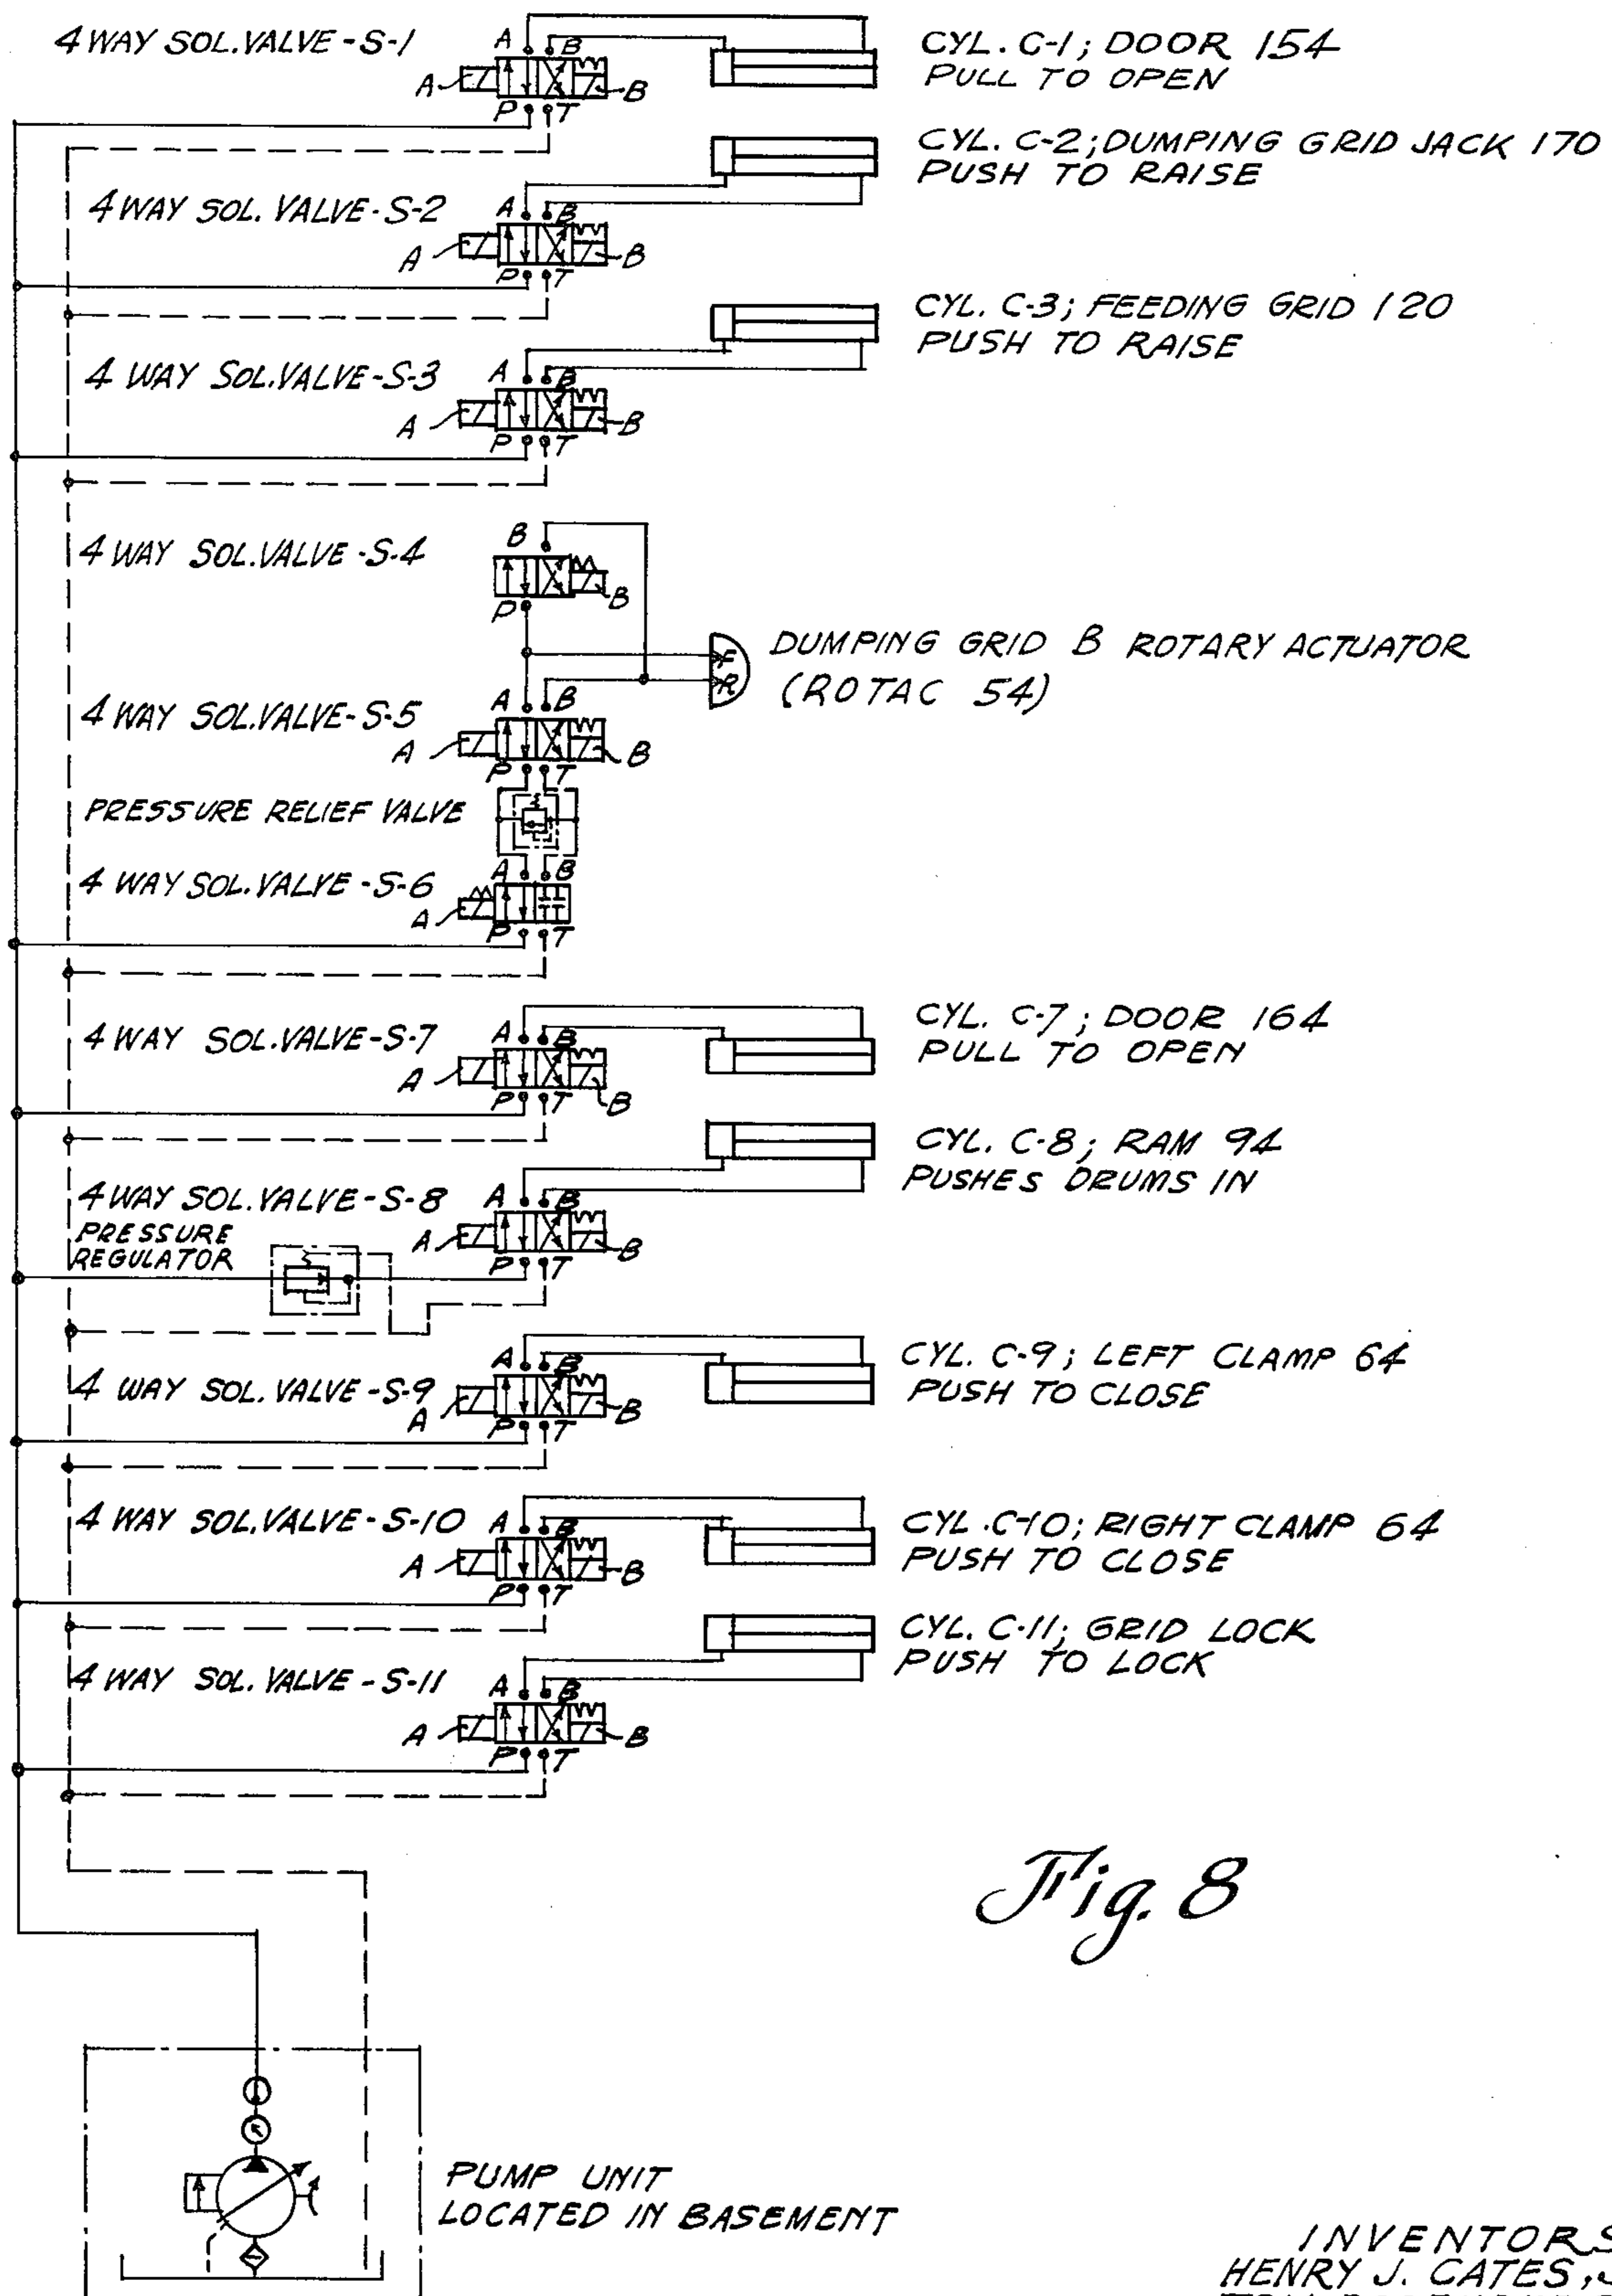 4 WAY SOL. VALVE-S-1
A B
A B
P T
CYL. C-1; DOOR 154
PULL TO OPEN
CYL. C-2; DUMPING GRID JACK 170
PUSH TO RAISE
4 WAY SOL. VALVE-S-2
A B
A B
P T
CYL. C-3; FEEDING GRID 120
PUSH TO RAISE
4 WAY SOL. VALVE-S-3
A B
A B
P T
4 WAY SOL. VALVE-S-4
B
B
P
F
R
DUMPING GRID B ROTARY ACTUATOR
(ROTAC 54)
4 WAY SOL. VALVE-S-5
A B
A B
P T
PRESSURE RELIEF VALVE
4 WAY SOL. VALVE-S-6
A B
A
P T
CYL. C-7; DOOR 164
PULL TO OPEN
4 WAY SOL. VALVE-S-7
A B
A B
P T
CYL. C-8; RAM 94
PUSHES DRUMS IN
4 WAY SOL. VALVE-S-8
A B
A B
P T
PRESSURE
REGULATOR
CYL. C-9; LEFT CLAMP 64
PUSH TO CLOSE
4 WAY SOL. VALVE-S-9
A B
A B
P T
CYL. C-10; RIGHT CLAMP 64
PUSH TO CLOSE
4 WAY SOL. VALVE-S-10
A B
A B
P T
CYL. C-11; GRID LOCK
PUSH TO LOCK
4 WAY SOL. VALVE-S-11
A B
A B
P T
Fig. 8
PUMP UNIT
LOCATED IN BASEMENT
INVENTORS
HENRY J. CATES, J